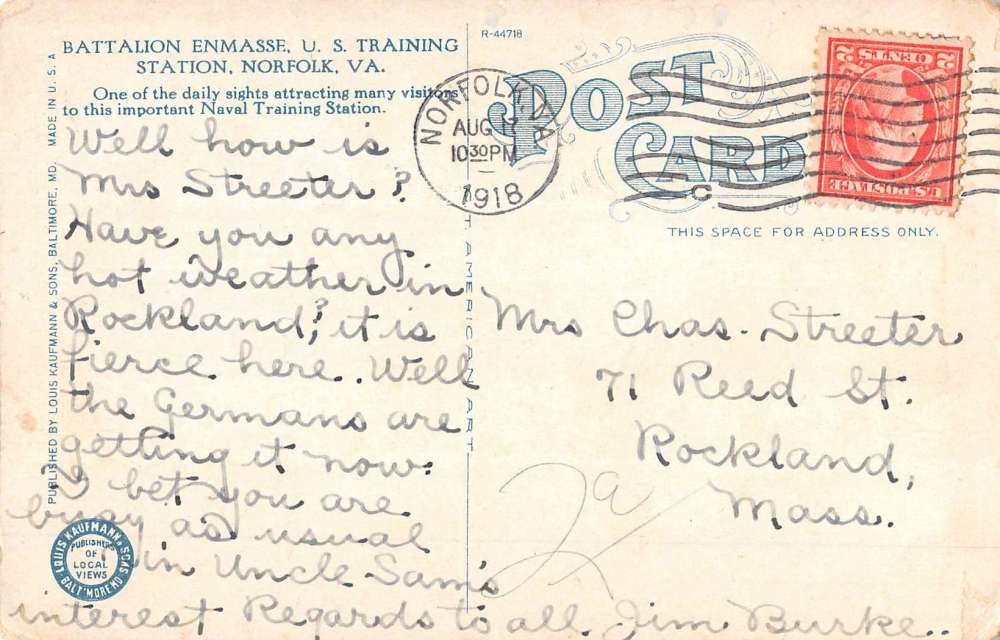 BATTALION ENMASSE, U. S. TRAINING
STATION, NORFOLK, VA.
One of the daily sights attracting many visitors
to this important Naval Training Station.
Well how is
Mrs Streeter?
Have you any
hot weather in
Rockland? it is
fierce here. Well
the Germans are
getting it now.
I bet you are
busy as usual
in Uncle Sam's
interest Regards to all. Jim Burke..
PUBLISHED BY LOUIS KAUFMANN & SONS, BALTIMORE, MD. MADE IN U. S. A
LOUIS KAUFMANN & SONS
PUBLISHERS
OF
LOCAL
VIEWS
BALTIMORE MD
R-44718
POST
CARD
NORFOLK,
AUG
10 30 PM
1918
C
2 CENTS 2
U.S. POSTAGE
THIS SPACE FOR ADDRESS ONLY.
AMERICAN ART
Mrs Chas. Streeter
71 Reed St.
Rockland,
Mass.